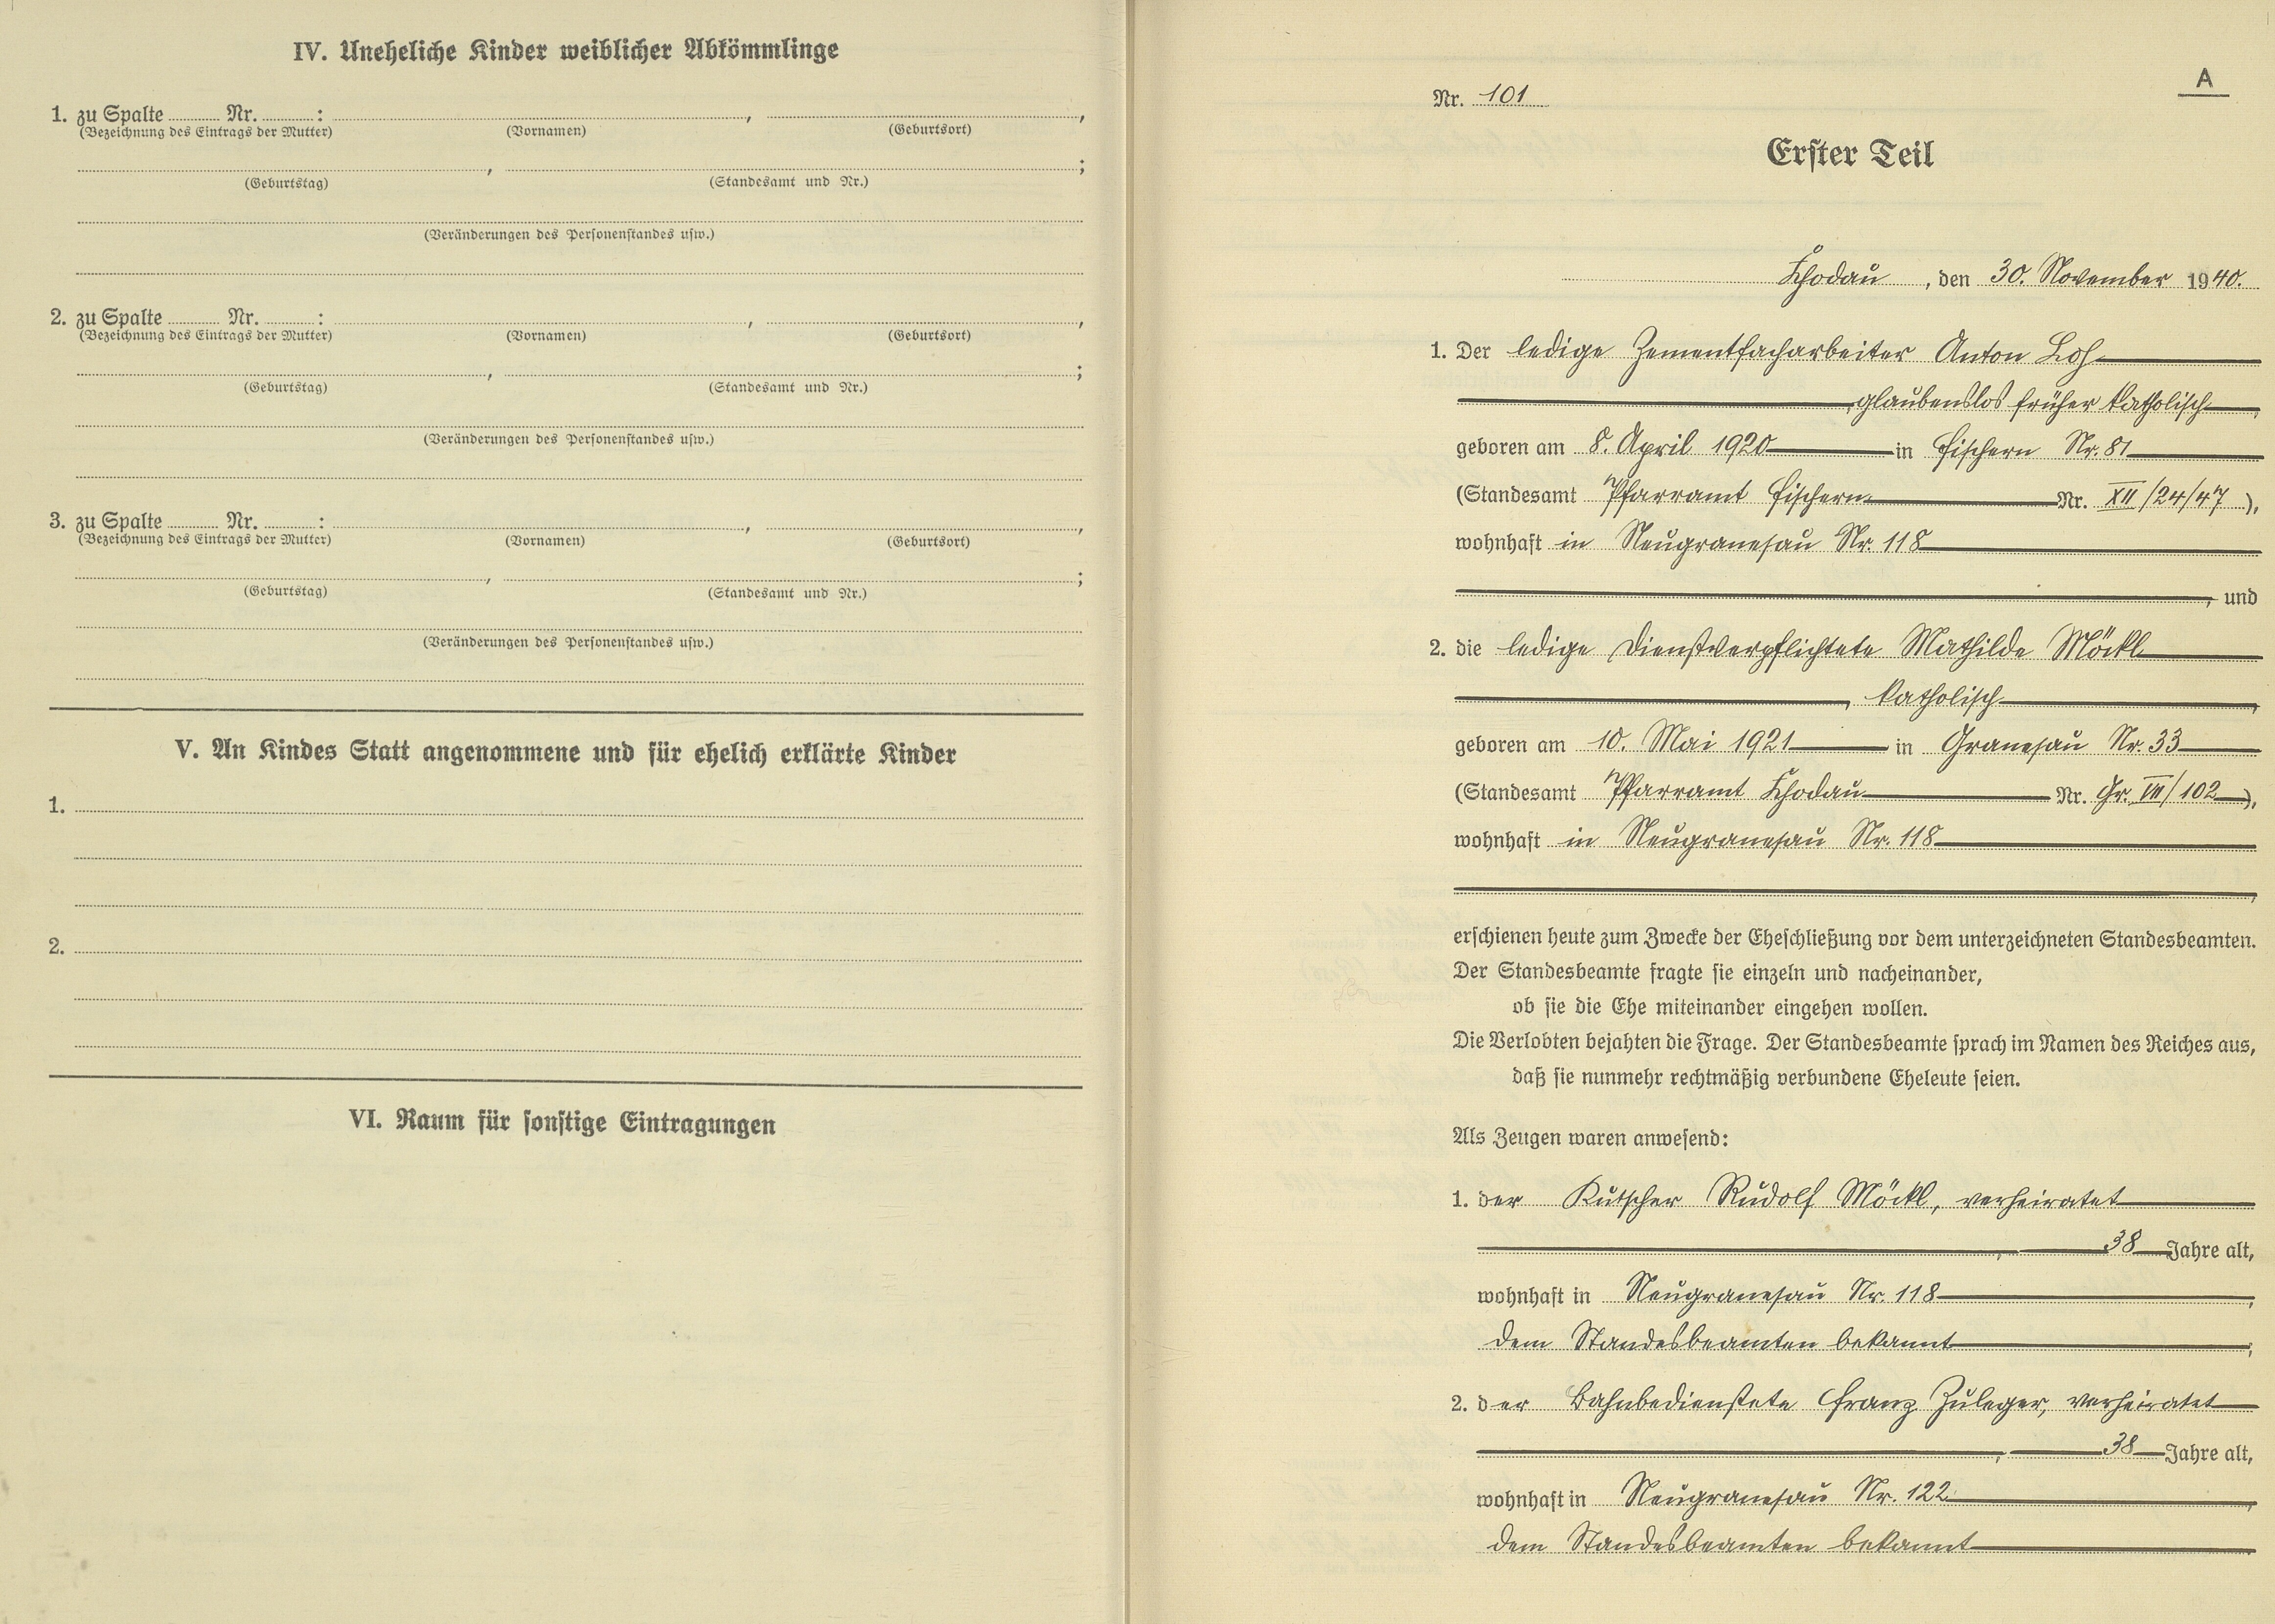 IV. Uneheliche Kinder weiblicher Abkömmlinge
1. zu Spalte ........ Nr. ........ :
(Bezeichnung des Eintrags der Mutter) (Vornamen) (Geburtsort)
(Geburtstag) (Standesamt und Nr.)
(Veränderungen des Personenstandes usw.)
2. zu Spalte ........ Nr. ........ :
(Bezeichnung des Eintrags der Mutter) (Vornamen) (Geburtsort)
(Geburtstag) (Standesamt und Nr.)
(Veränderungen des Personenstandes usw.)
3. zu Spalte ........ Nr. ........ :
(Bezeichnung des Eintrags der Mutter) (Vornamen) (Geburtsort)
(Geburtstag) (Standesamt und Nr.)
(Veränderungen des Personenstandes usw.)
V. An Kindes Statt angenommene und für ehelich erklärte Kinder
1.
2.
VI. Raum für sonstige Eintragungen
A
Nr. 101
Erster Teil
Chodau, den 30. November 1940.
1. Der ledige Zementfacharbeiter Anton Loh
, glaubenslos früher katholisch,
geboren am 8. April 1920 in Fischern Nr. 81
(Standesamt Pfarramt Fischern Nr. XII/24/47),
wohnhaft in Neugranesau Nr. 118
, und
2. die ledige Dienstverpflichtete Mathilde Möckl
, katholisch,
geboren am 10. Mai 1921 in Granesau Nr. 33
(Standesamt Pfarramt Chodau Nr. Gr. VII/102),
wohnhaft in Neugranesau Nr. 118
,
erschienen heute zum Zwecke der Eheschließung vor dem unterzeichneten Standesbeamten.
Der Standesbeamte fragte sie einzeln und nacheinander,
ob sie die Ehe miteinander eingehen wollen.
Die Verlobten bejahten die Frage. Der Standesbeamte sprach im Namen des Reiches aus,
daß sie nunmehr rechtmäßig verbundene Eheleute seien.
Als Zeugen waren anwesend:
1. der Kutscher Rudolf Möckl, verheiratet
, 38 Jahre alt,
wohnhaft in Neugranesau Nr. 118,
dem Standesbeamten bekannt;
2. der Bahnbedienstete Franz Zuleger, verheiratet
, 38 Jahre alt,
wohnhaft in Neugranesau Nr. 122,
dem Standesbeamten bekannt.